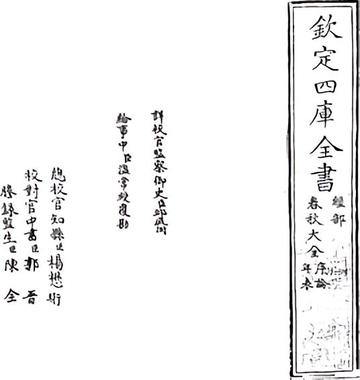 欽定四庫全書
經部
春秋大全 序論
年表
詳校官監察御史臣邱庭漋
給事中臣溫常綬覆勘
總校官知縣臣楊懋珩
校對官中書臣郭晉
謄錄監生臣陳全